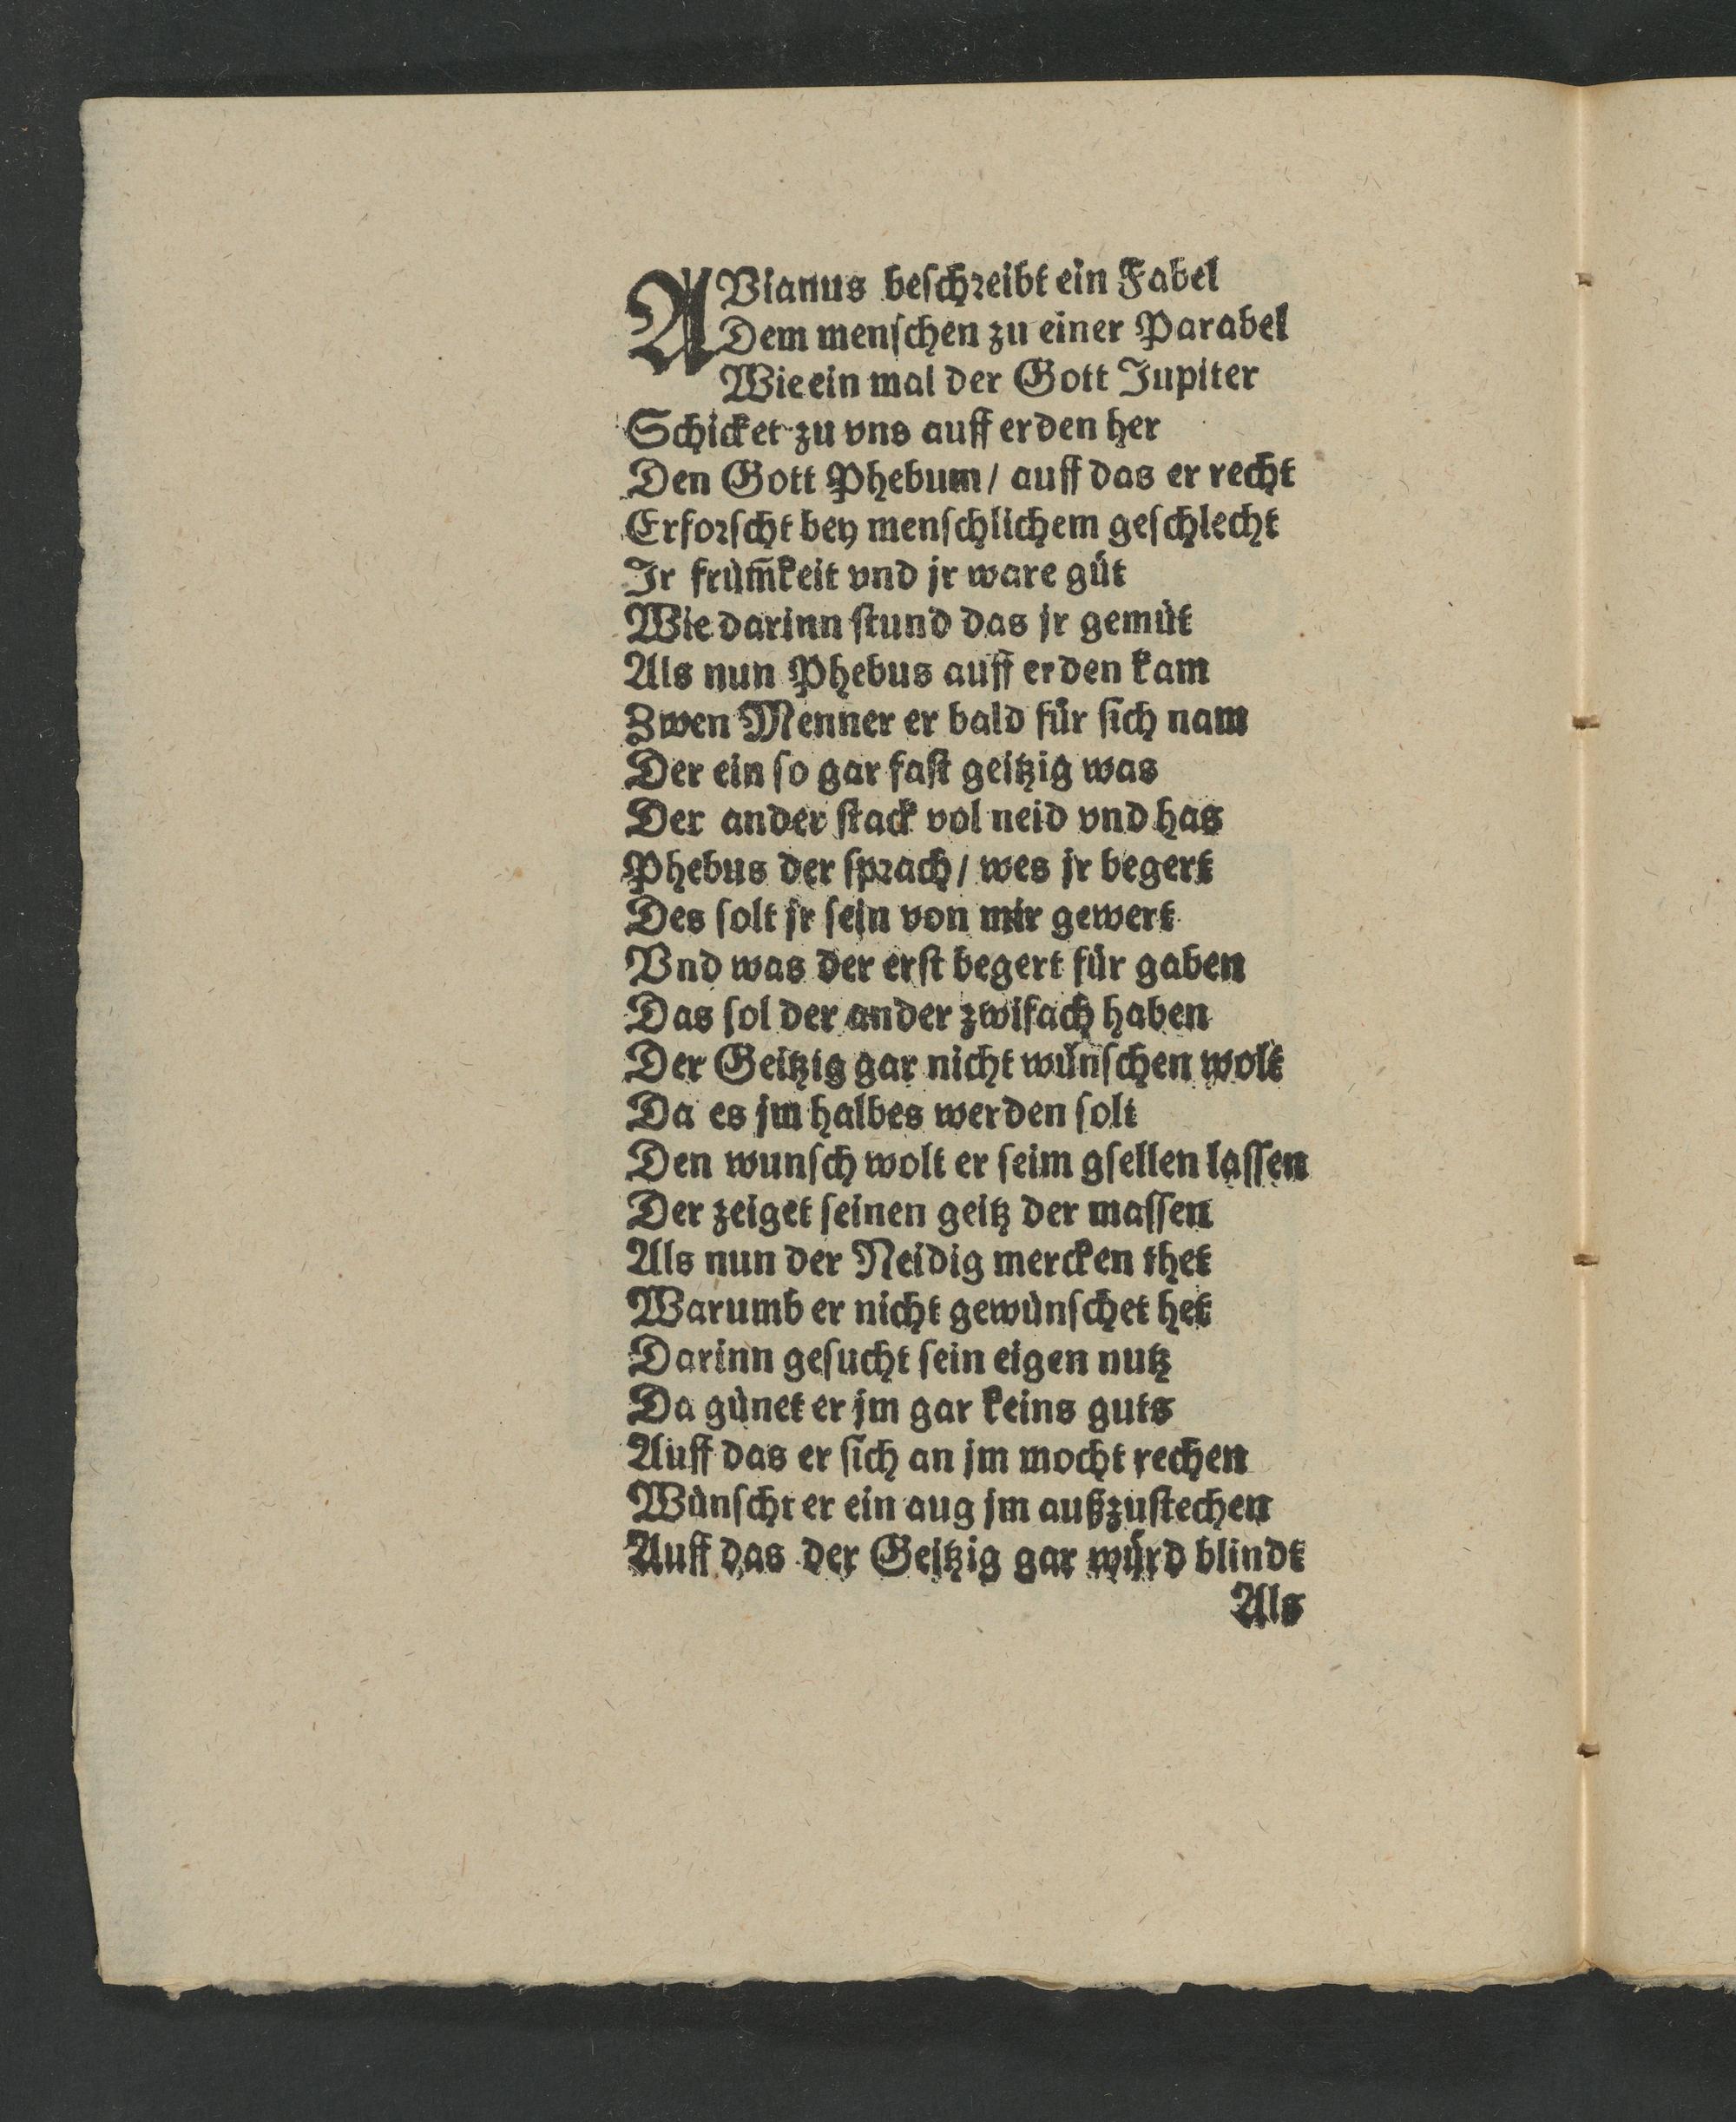 AVianus beſchreibt ein Fabel
Dem menſchen zu einer Parabel
Wie ein mal der Gott Jupiter
Schicket zu vns auff erden her
Den Gott Phebum / auff das er recht
Erforſcht bey menſchlichem geſchlecht
Jr frům̃keit vnd jr ware gůt
Wie darinn ſtund das jr gemůt
Als nun Phebus auff erden kam
Zwen Menner er bald fůr ſich nam
Der ein ſo gar faſt geitzig was
Der ander ſtack vol neid vnd has
Phebus der ſprach / wes jr begert
Des ſolt jr ſein von mir gewert
Vnd was der erſt begert fůr gaben
Das ſol der ander zwifach haben
Der Geitzig gar nicht wůnſchen wolt
Da es jm halbes werden ſolt
Den wunſch wolt er ſeim gſellen laſſen
Der zeiget ſeinen geitz der maſſen
Als nun der Neidig mercken thet
Warumb er nicht gewůnſchet het
Darinn geſucht ſein eigen nutz
Da gůnet er jm gar keins guts
Auff das er ſich an jm mocht rechen
Wůnſcht er ein aug jm außzuſtechen
Auff das der Geitzig gar wůrd blindt
Als